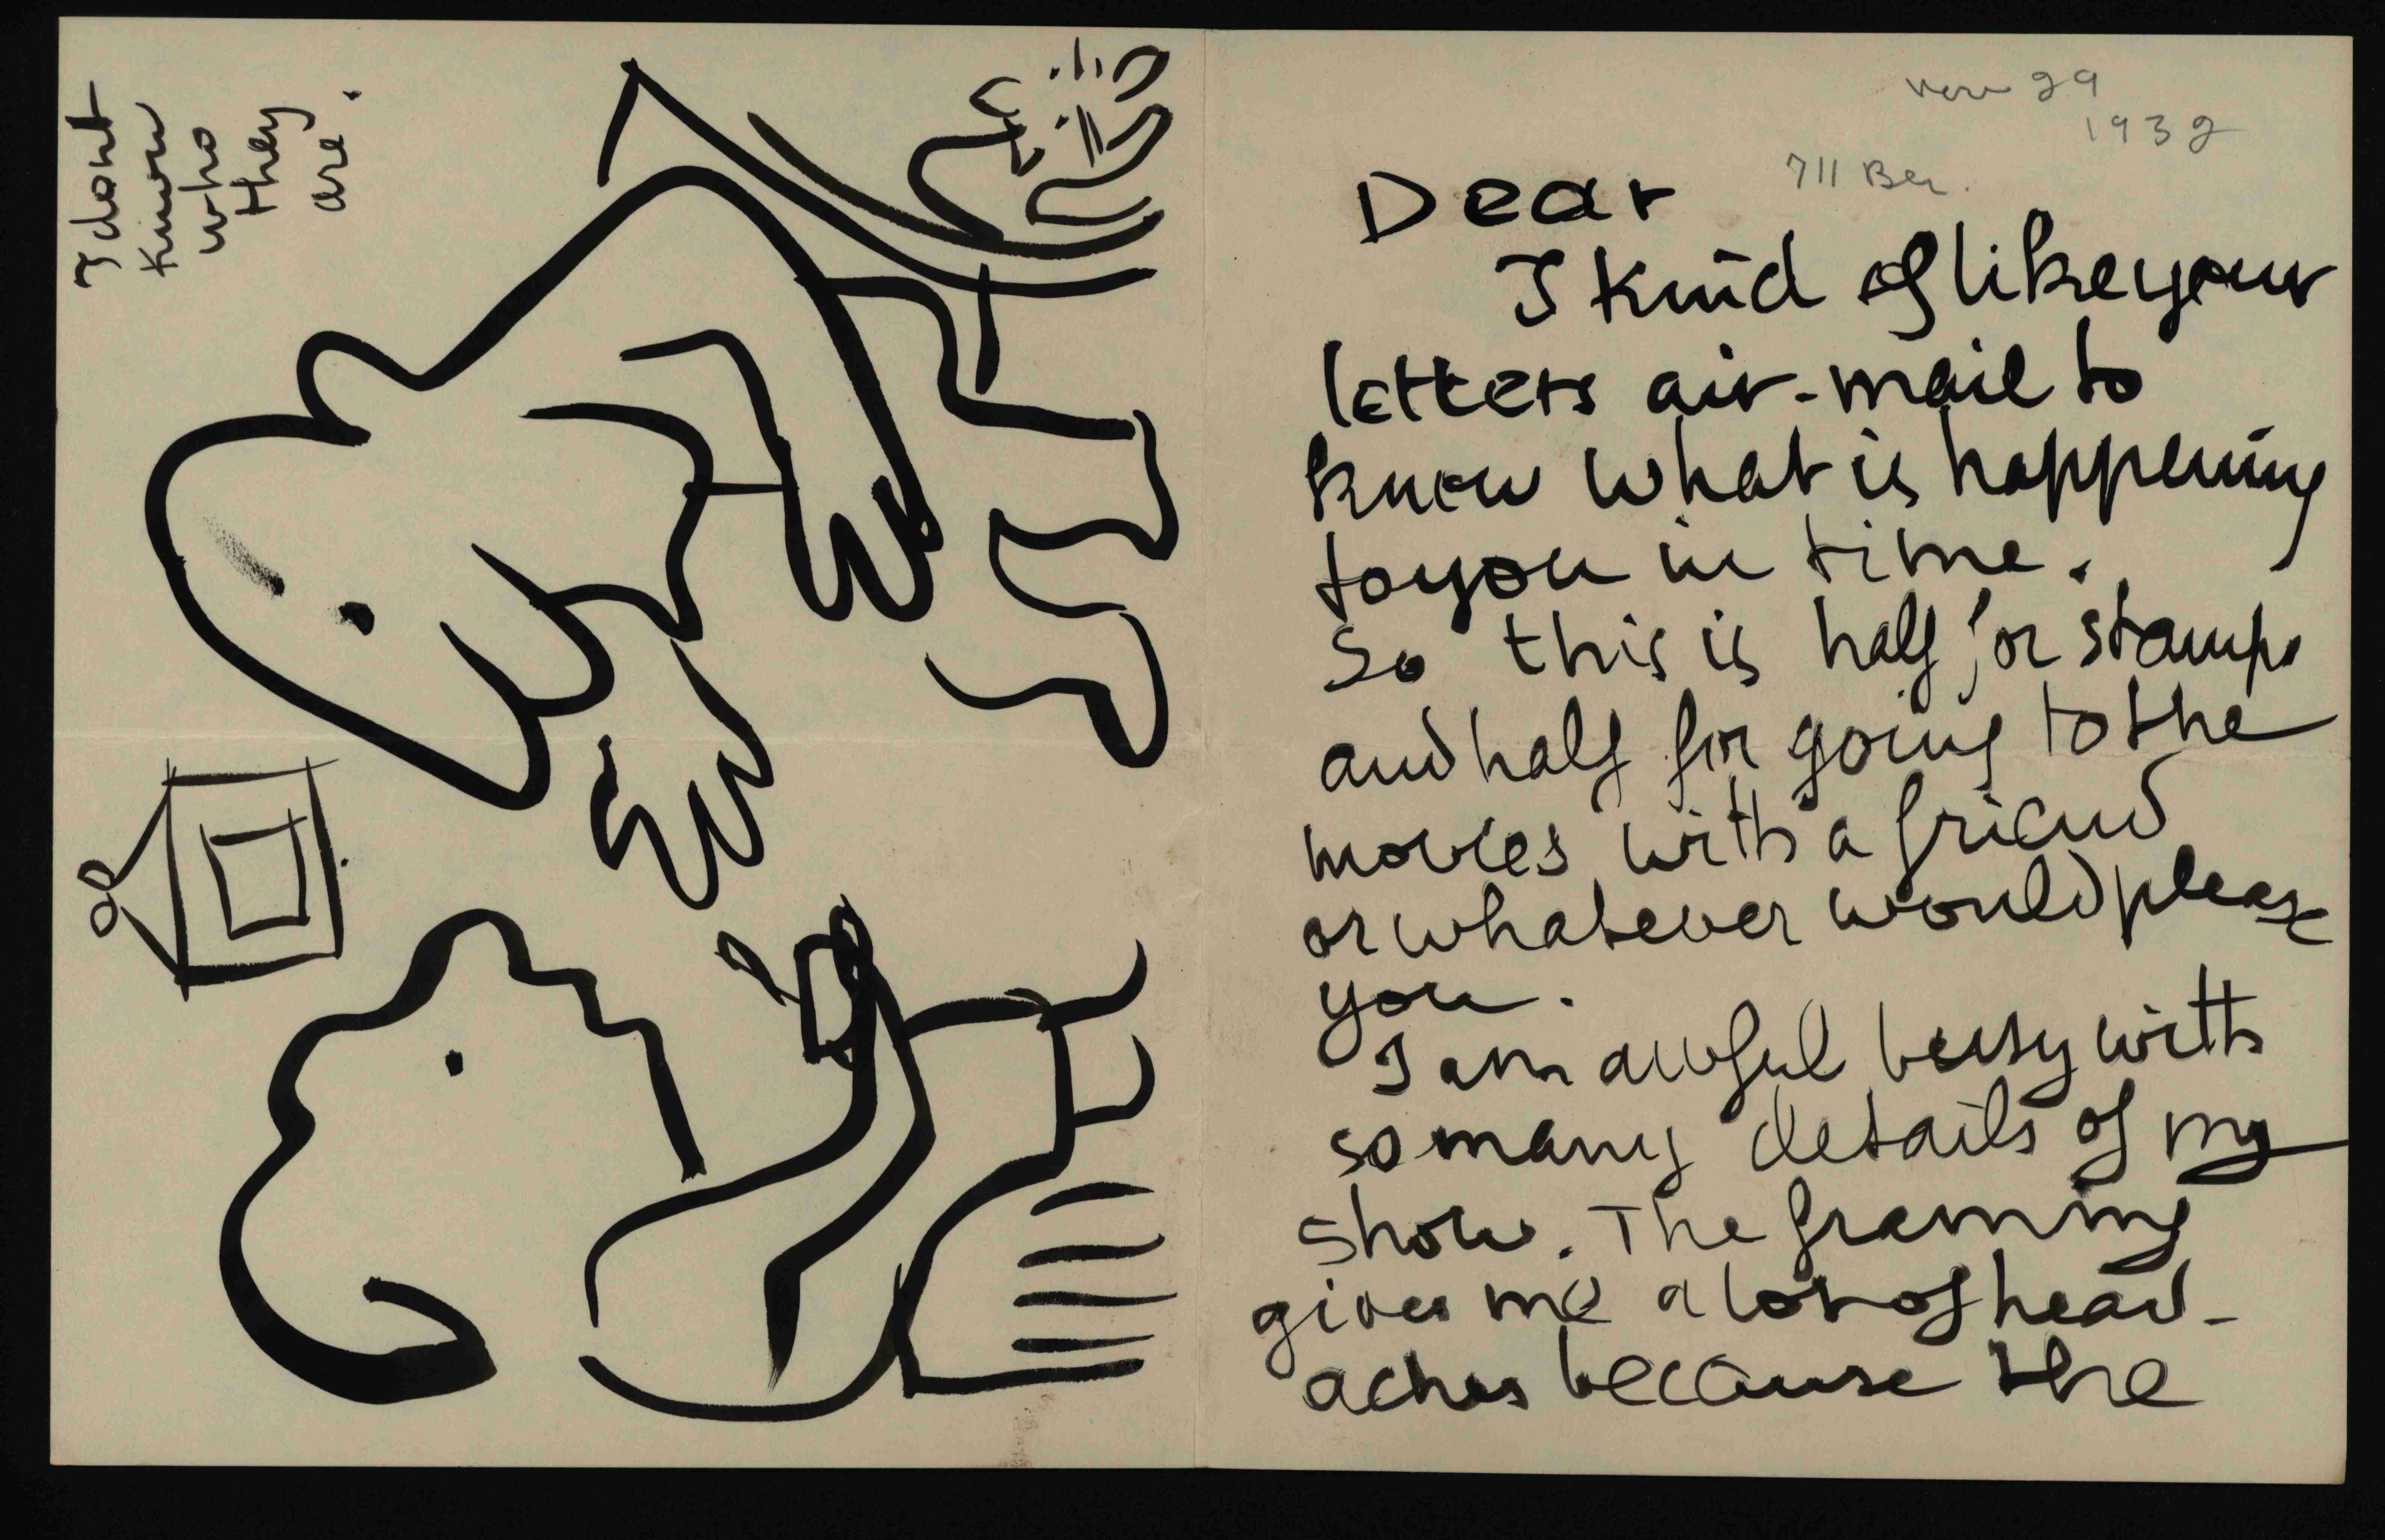 I dont
know
who
they
are.
Nov 29
1932
711 Ber.
Dear
I kind of like your
letters air-mail to
know what is happening
to you in time.
So this is half for stamps
and half for going to the
movies with a friend
or whatever would please
you.
I am awful busy with
so many details of my
show. The framing
gives me a lot of head-
aches because the